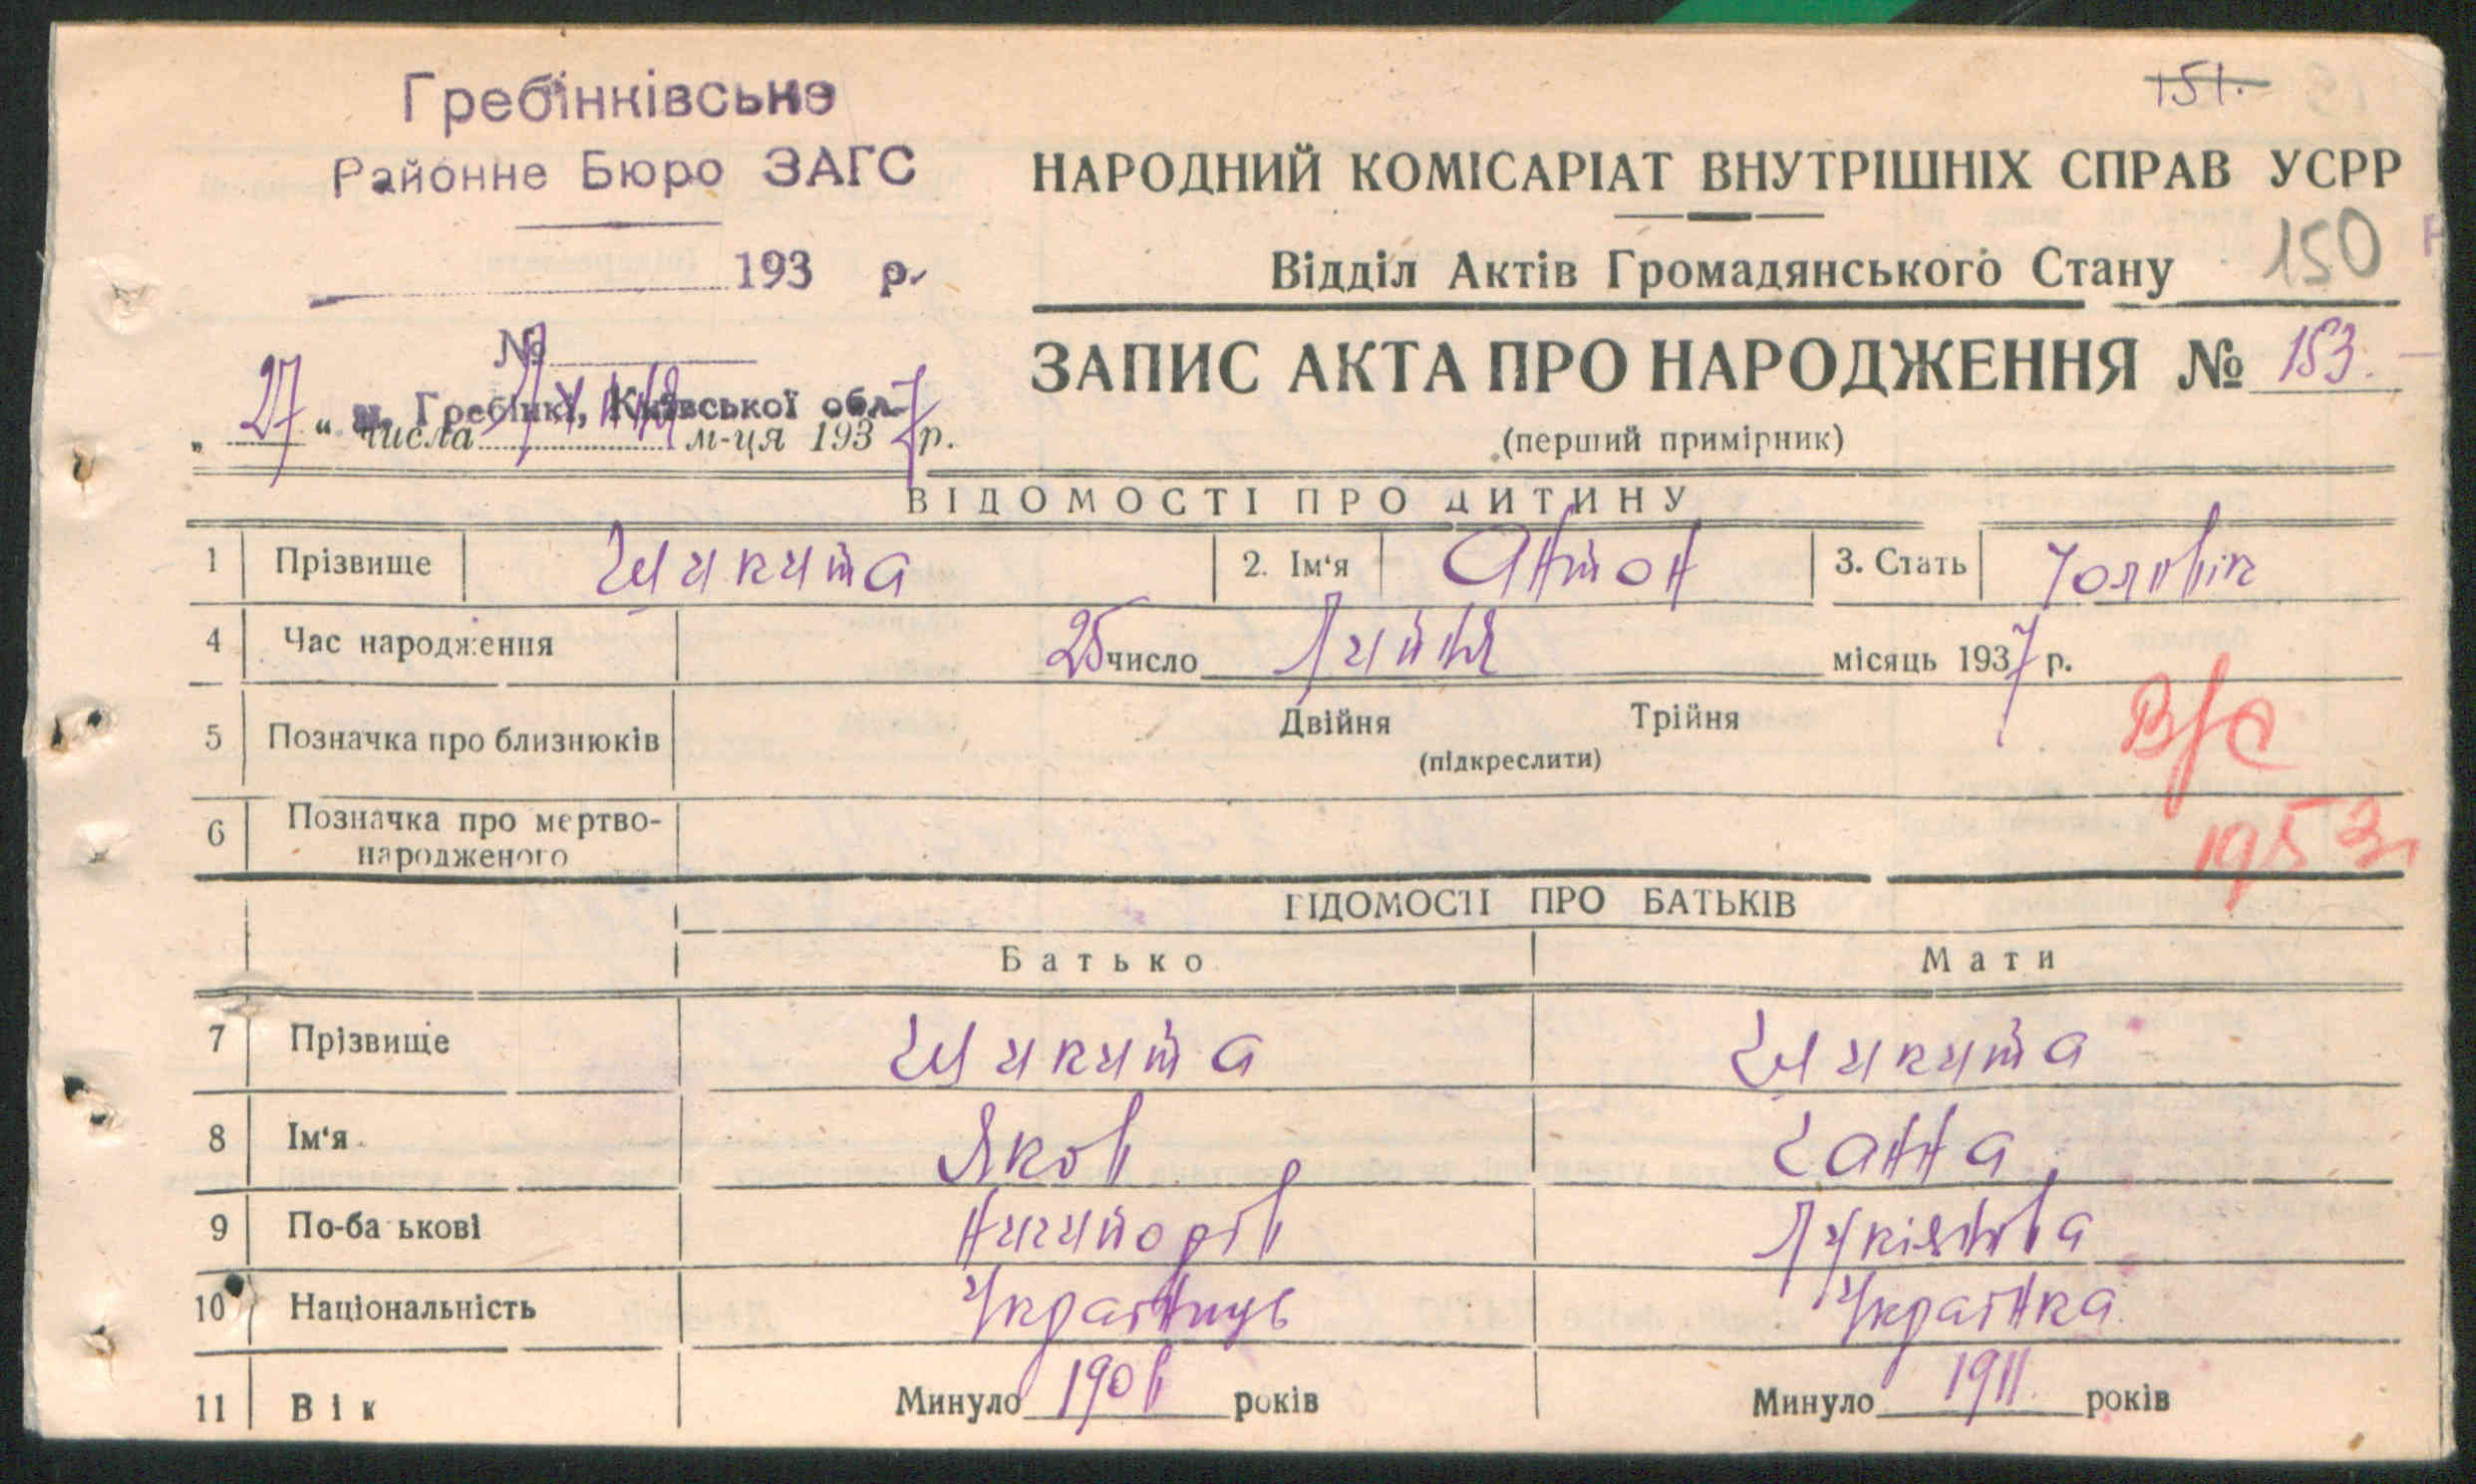 151.
Гребінківське
Районне Бюро ЗАГС
193 р.
№
м. Гребінки, Київської обл.
„27“ числа Липня м-ця 1937 р.
НАРОДНИЙ КОМІСАРІАТ ВНУТРІШНІХ СПРАВ УСРР
Відділ Актів Громадянського Стану
150
ЗАПИС АКТА ПРО НАРОДЖЕННЯ № 153.
(перший примірник)
ВІДОМОСТІ ПРО ДИТИНУ
1 Прізвище Шикита 2. Ім‘я Антон 3. Стать Чоловік
4 Час народження 25 число Липня місяць 1937 р.
5 Позначка про близнюків Двійня Трійня
(підкреслити)
В/С
1953
6 Позначка про мертво-
народженого
ВІДОМОСТІ ПРО БАТЬКІВ
Батько Мати
7 Прізвище Шикита Шикита
8 Ім‘я Яков Ганна
9 По-ба ькові Ничипорів Лукіянівна
10 Національність Українець Українка
11 Вік Минуло років Минуло 1911 років